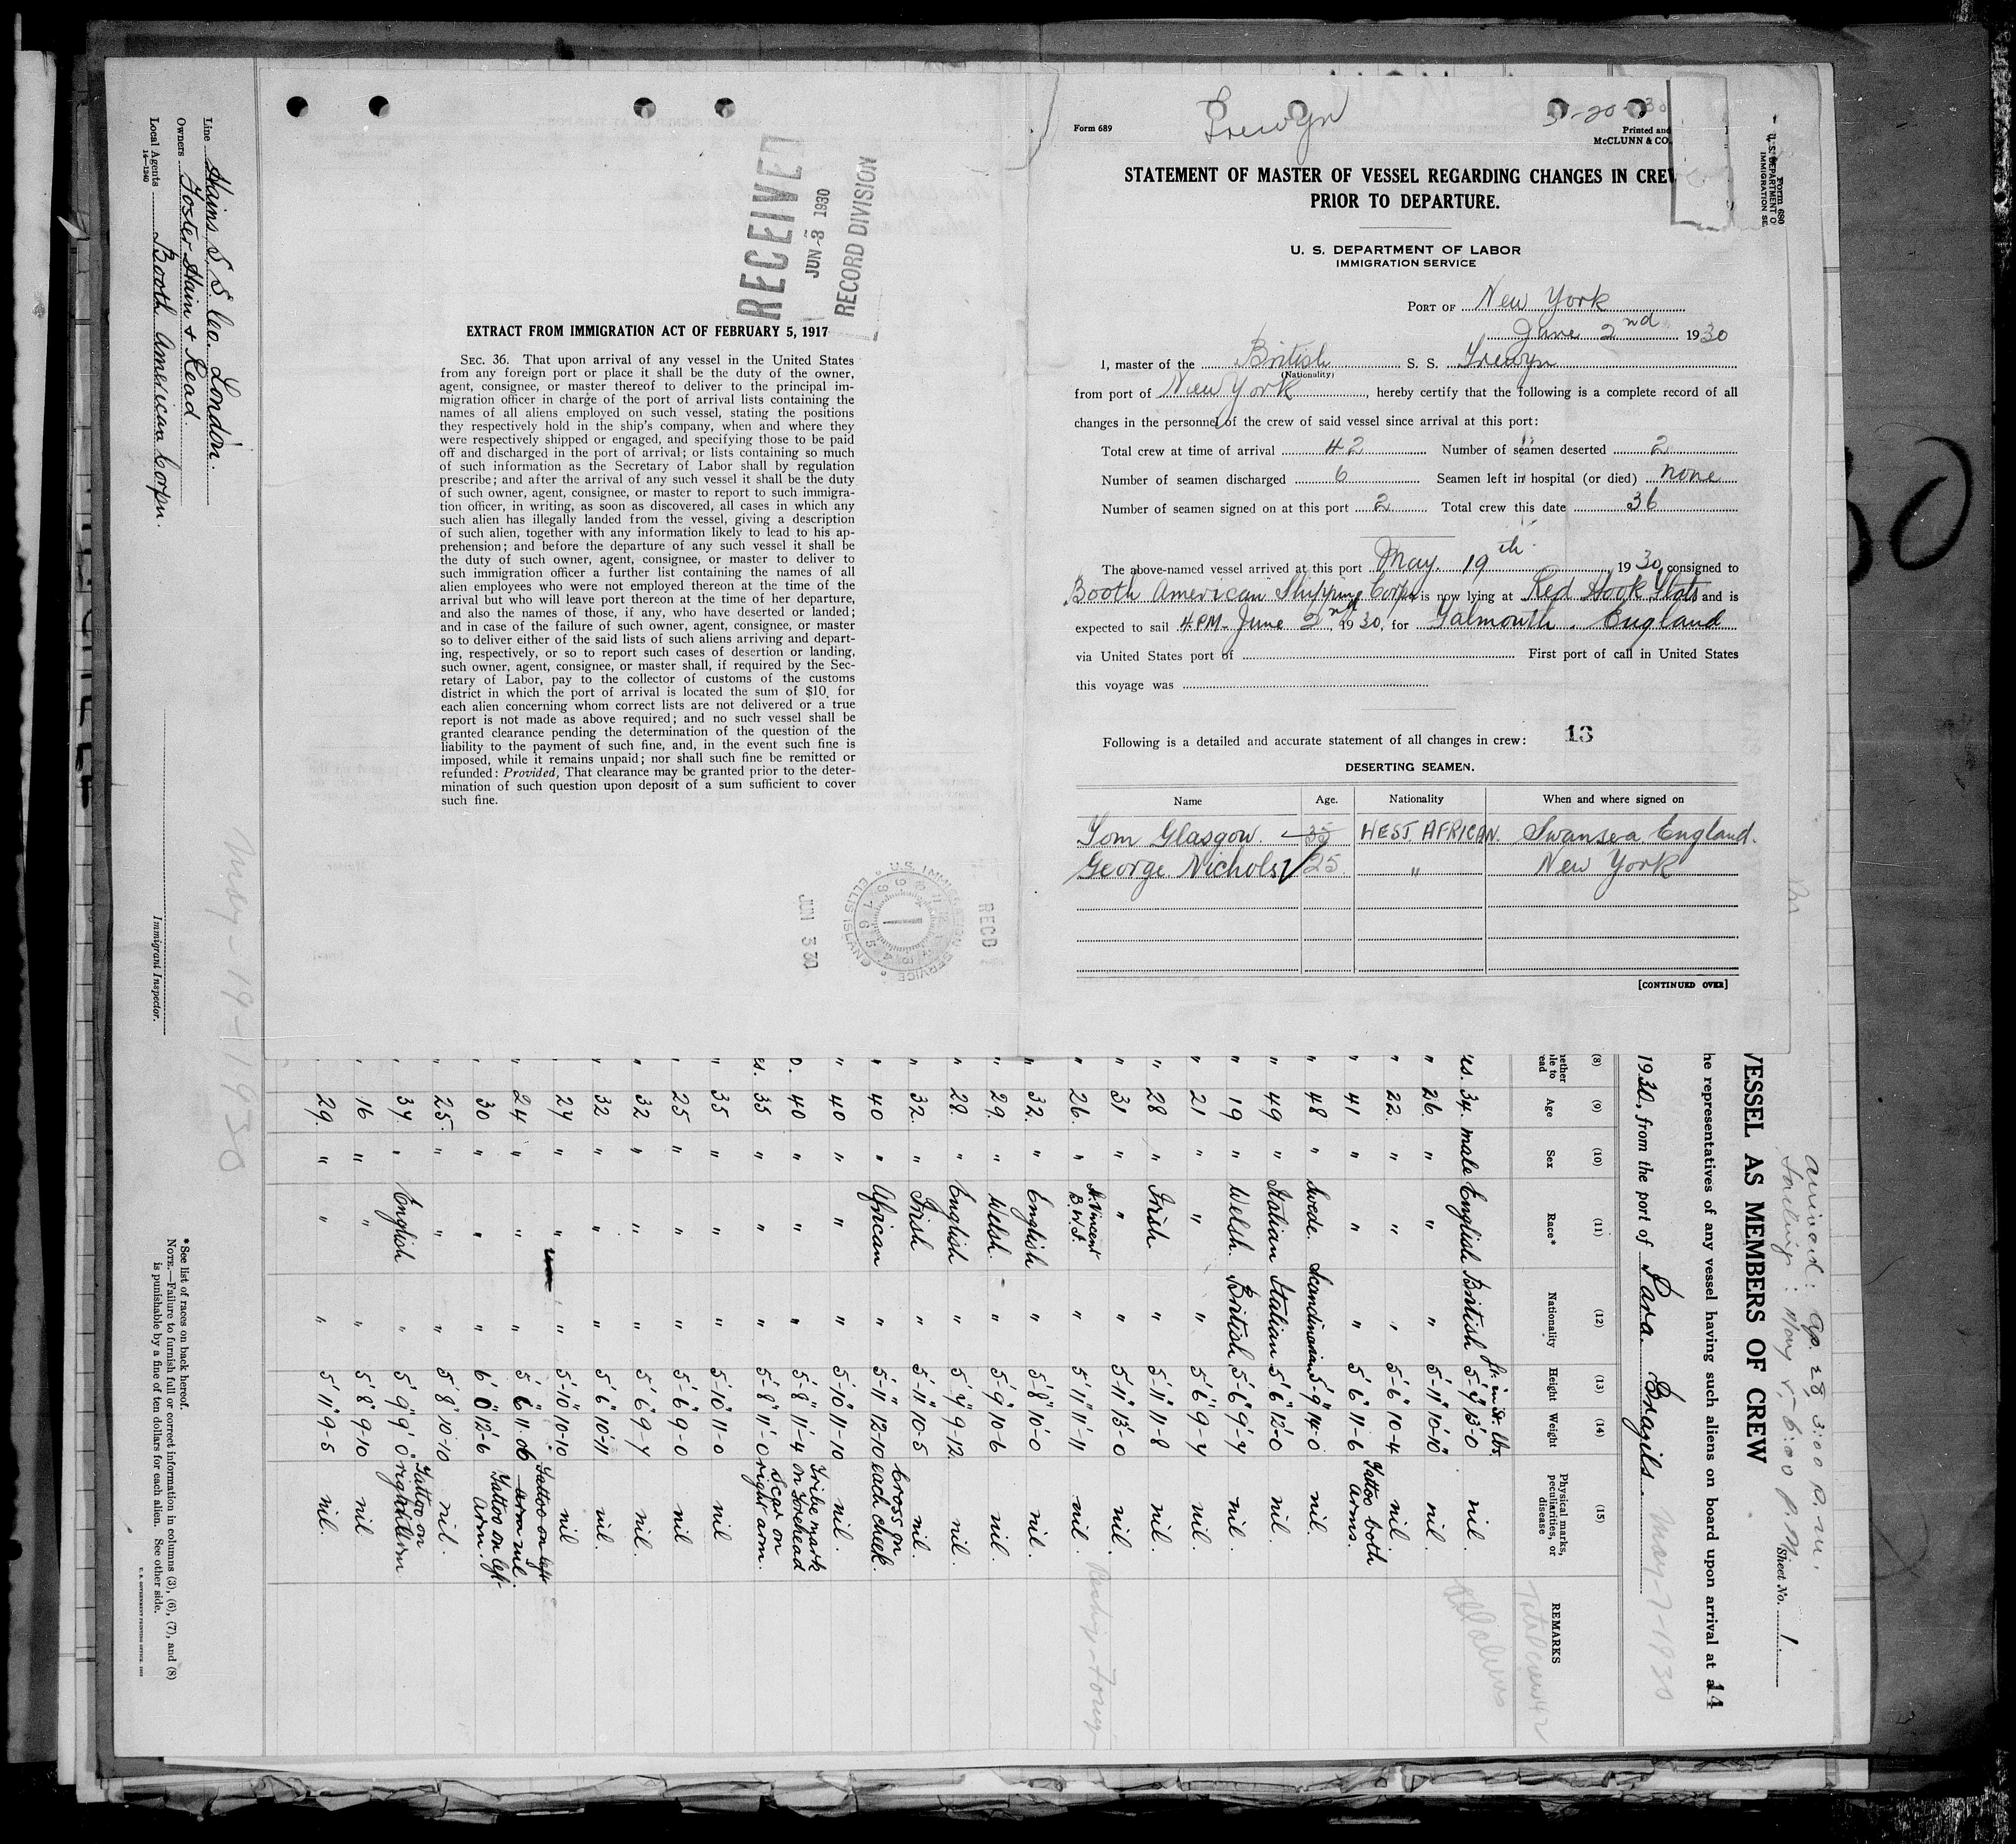 Form 689
Trewyn
5-20-30
Printed and
McCLUNN & CO.
STATEMENT OF MASTER OF VESSEL REGARDING CHANGES IN CREW
PRIOR TO DEPARTURE.
U. S. DEPARTMENT OF LABOR
IMMIGRATION SERVICE
PORT OF New York
June 2nd 1930
I, master of the British S. S. Trewyn
(Nationality)
from port of New York, hereby certify that the following is a complete record of all
changes in the personnel of the crew of said vessel since arrival at this port:
Total crew at time of arrival 42 Number of seamen deserted 2
Number of seamen discharged 6 Seamen left in hospital (or died) none
Number of seamen signed on at this port 2 Total crew this date 36
The above-named vessel arrived at this port May 19th 1930, consigned to
Booth American Shipping Corpn is now lying at Red Hook Flats and is
expected to sail 4.P.M. June 2nd, 1930, for Falmouth. England
via United States port of First port of call in United States
this voyage was
Following is a detailed and accurate statement of all changes in crew: 13
DESERTING SEAMEN.
Name Age. Nationality When and where signed on
Tom Glasgow. 35 WEST AFRICAN. Swansea. England.
George Nichols 25 " New York
[CONTINUED OVER]
RECEIVED
JUN-3 1930
RECORD DIVISION
EXTRACT FROM IMMIGRATION ACT OF FEBRUARY 5, 1917
SEC. 36. That upon arrival of any vessel in the United States
from any foreign port or place it shall be the duty of the owner,
agent, consignee, or master thereof to deliver to the principal im-
migration officer in charge of the port of arrival lists containing the
names of all aliens employed on such vessel, stating the positions
they respectively hold in the ship's company, when and where they
were respectively shipped or engaged, and specifying those to be paid
off and discharged in the port of arrival; or lists containing so much
of such information as the Secretary of Labor shall by regulation
prescribe; and after the arrival of any such vessel it shall be the duty
of such owner, agent, consignee, or master to report to such immigra-
tion officer, in writing, as soon as discovered, all cases in which any
such alien has illegally landed from the vessel, giving a description
of such alien, together with any information likely to lead to his ap-
prehension; and before the departure of any such vessel it shall be
the duty of such owner, agent, consignee, or master to deliver to
such immigration officer a further list containing the names of all
alien employees who were not employed thereon at the time of the
arrival but who will leave port thereon at the time of her departure,
and also the names of those, if any, who have deserted or landed;
and in case of the failure of such owner, agent, consignee, or master
so to deliver either of the said lists of such aliens arriving and depart-
ing, respectively, or so to report such cases of desertion or landing,
such owner, agent, consignee, or master shall, if required by the Sec-
retary of Labor, pay to the collector of customs of the customs
district in which the port of arrival is located the sum of $10 for
each alien concerning whom correct lists are not delivered or a true
report is not made as above required; and no such vessel shall be
granted clearance pending the determination of the question of the
liability to the payment of such fine, and, in the event such fine is
imposed, while it remains unpaid; nor shall such fine be remitted or
refunded: Provided, That clearance may be granted prior to the deter-
mination of such question upon deposit of a sum sufficient to cover
such fine.
U.S. IMMIGRATION SERVICE ELLIS ISLAND
RECD
JUN 3 30
Form 680
U. S. DEPARTMENT O
IMMIGRATION SE
Sheet No. 1.
VESSEL AS MEMBERS OF CREW
he representatives of any vessel having such aliens on board upon arrival at a 14
1930, from the port of Para. Brazils. May-7-1930
(8) (9) (10) (11) (12) (13) (14) (15)
Age Sex Race* Nationality Height Weight Physical marks, peculiarities, or disease REMARKS
34. male English British 5'-9" 13-0 nil.
" 26 " " " 5'-11" 10-10 nil.
" 22 " " " 5'-6" 10-4 nil.
" 41 " " " 5'6" 11-6 Tattoo both arms.
" 48 " Swede. Scandinavian 5'-9" 14-0 nil.
" 49 " Italian Italian 5'6" 12-0 nil.
" 19 " Welsh. British 5'-6" 9-7 nil.
" 21 " " " 5'6" 9-7 nil.
" 28 " Irish " 5'-11" 11-8 nil.
" 31 " " " 5'-11" 13-0 nil.
" 26 " St. Vincent B.W.I. " 5'11" 11-11 nil.
" 32. " English " 5'8" 10-0 nil.
" 29. " Welsh. " 5'-9" 10-6 nil.
" 28. " English " 5'7" 9-12 nil.
" 32. " Irish " 5'-11" 10-5 nil.
" 40 " African " 5'-11" 12-10 Cross on each cheek.
" 40 " " " 5'-10" 11-10 nil.
40 " " " 5'-8" 11-4 Tribe mark on Forehead
35 " " " 5'-8" 11-0 Scar on right arm.
" 35 " " " 5'-10" 11-0 nil
" 25 " " " 5'-6" 9-0 nil
" 32 " " " 5'6" 9-7 nil.
" 32 " " " 5'6" 10-11 nil.
" 27 " " " 5'-10" 10-10 nil
" 24 " " " 5'6" 11-06 Tattoo on left arm nil.
" 30 " " " 6'0" 12-6 Tattoo on left arm.
" 25 " " " 5'8" 10-10 nil.
" 37. " English " 5'9" 9-0 Tattoo on right arm
" 16 " " " 5'8" 9-10 nil
" 29. " " " 5'11" 9-5 nil.
Line Hains S. S. Co. London.
Owners Foster Hain & Read.
Local Agents Booth American Corpn.
14-1240
May-19-1930
Immigrant Inspector.
*See list of races on back hereof.
NOTE.—Failure to furnish full or correct information in columns (3), (6), (7), and (8)
is punishable by a fine of ten dollars for each alien. See other side.